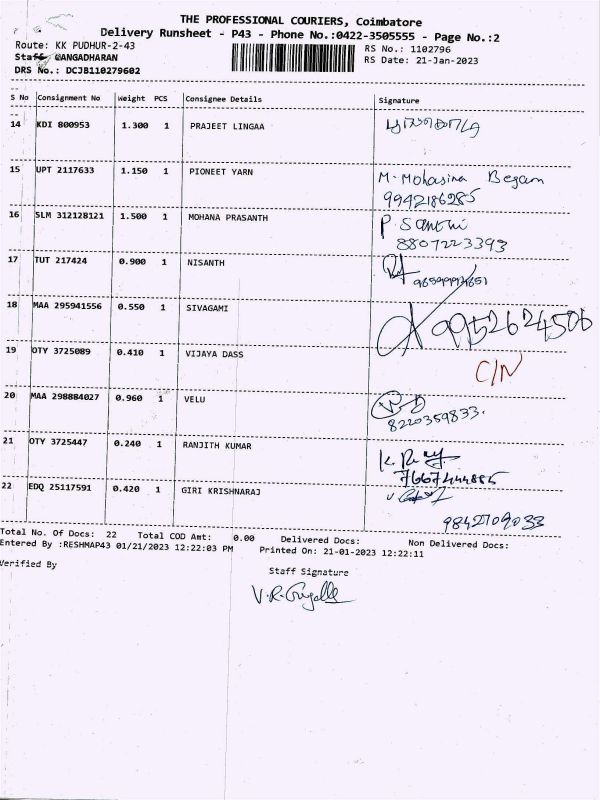 THE PROFESSIONAL COURIERS, Coimbatore
Delivery Runsheet - P43 - Phone No.:0422-3505555 - Page No.:2
Route: KK PUDHUR-2-43 RS No.: 1102796
Staff GANGADHARAN RS Date: 21-Jan-2023
DRS No.: DCJB110279602
S No Consignment No Weight PCS Consignee Details Signature
14 KDI 800953 1.300 1 PRAJEET LINGAA
15 UPT 2117633 1.150 1 PIONEET YARN M. Mohasina Begam
9942186285
16 SLM 312128121 1.500 1 MOHANA PRASANTH P. Santhi
8807223393
17 TUT 217424 0.900 1 NISANTH
18 MAA 295941556 0.550 1 SIVAGAMI 9952624506
19 OTY 3725089 0.410 1 VIJAYA DASS C/N
20 MAA 298884027 0.960 1 VELU
8220359833.
21 OTY 3725447 0.240 1 RANJITH KUMAR
7667444885
22 EDQ 25117591 0.420 1 GIRI KRISHNARAJ
9842709033
Total No. Of Docs: 22 Total COD Amt: 0.00 Delivered Docs: Non Delivered Docs:
Entered By :RESHMAP43 01/21/2023 12:22:03 PM Printed On: 21-01-2023 12:22:11
Verified By Staff Signature